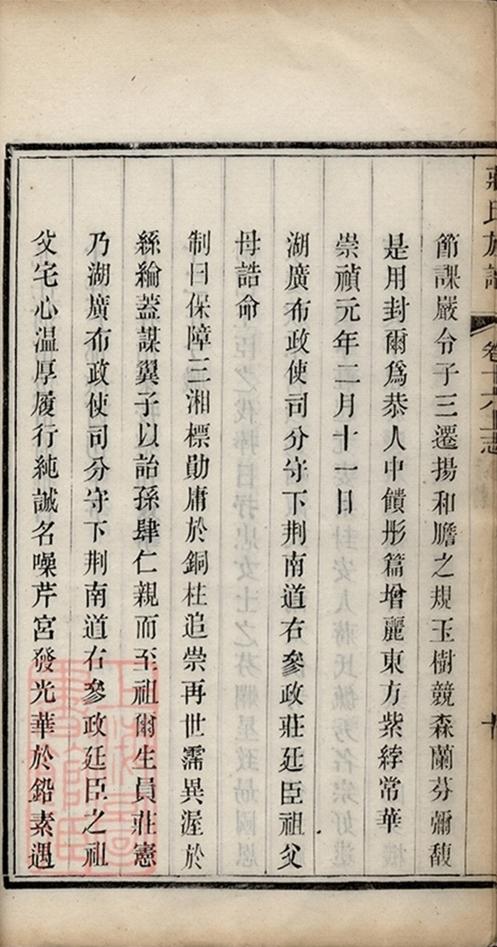 莊氏族譜 卷十六上志
節課嚴令子三遷揚和膽之規玉樹競森蘭芬彌馥
是用封爾為恭人中饋彤篇增麗東方紫綍常華
崇禎元年二月十一日
湖廣布政使司分守下荆南道右參政莊廷臣祖父
母誥命
制曰保障三湘標勛庸於銅柱追崇再世霈異渥於
絲綸蓋謀翼子以詒孫肆仁親而至祖爾生員莊憲
乃湖廣布政使司分守下荆南道右參政廷臣之祖
父宅心溫厚履行純誠名噪芹宮發光華於鉛素遇